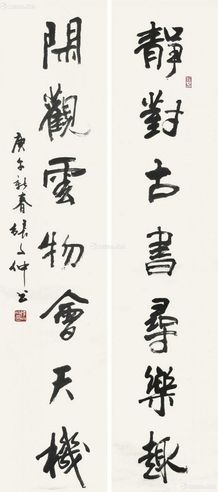 靜對古書尋樂趣
閒觀雲物會天機
庚午新春張文仲書